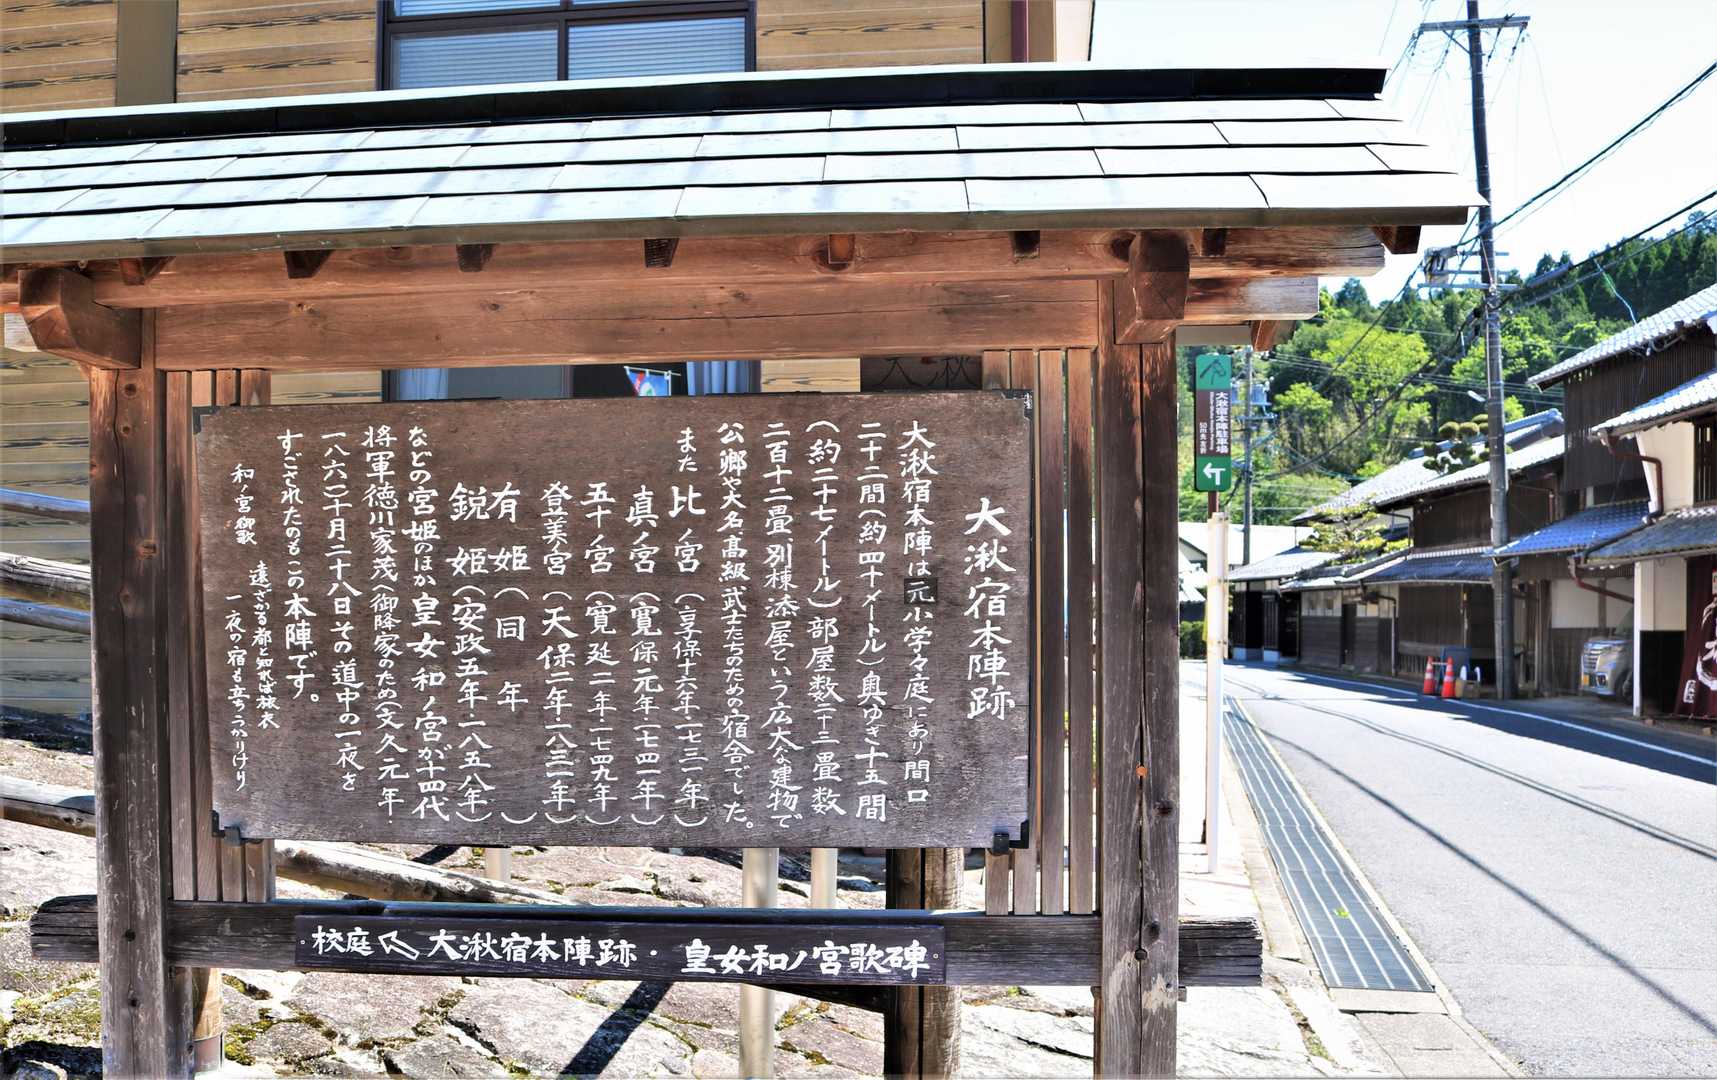 大湫宿本陣跡
大湫宿本陣は元小学々庭にあり間口
二十二間(約四十メートル)奥ゆき十五間
(約二十七メートル)部屋数二十三畳数
二百十二畳、別棟添屋という広大な建物で
公郷や大名、高級武士たちのための宿舎でした。
また 比ノ宮(享保十六年・一七三一年)
真ノ宮(寛保元年・一七四一年)
五十ノ宮(寛延二年・一七四九年)
登美ノ宮(天保二年・一八三一年)
有姫(同年)
鋭姫(安政五年・一八五八年)
などの宮姫のほか皇女和ノ宮が十四代
将軍徳川家茂へ御降家のため(文久元年・
一八六一)十月二十八日その道中の一夜を
すごされたのもこの本陣です。
和ノ宮御歌 遠ざかる都と知れば旅衣
一夜の宿も立ちうかりけり
校庭 大湫宿本陣跡・皇女和ノ宮歌碑
大湫宿本陣駐車場
50m先左折